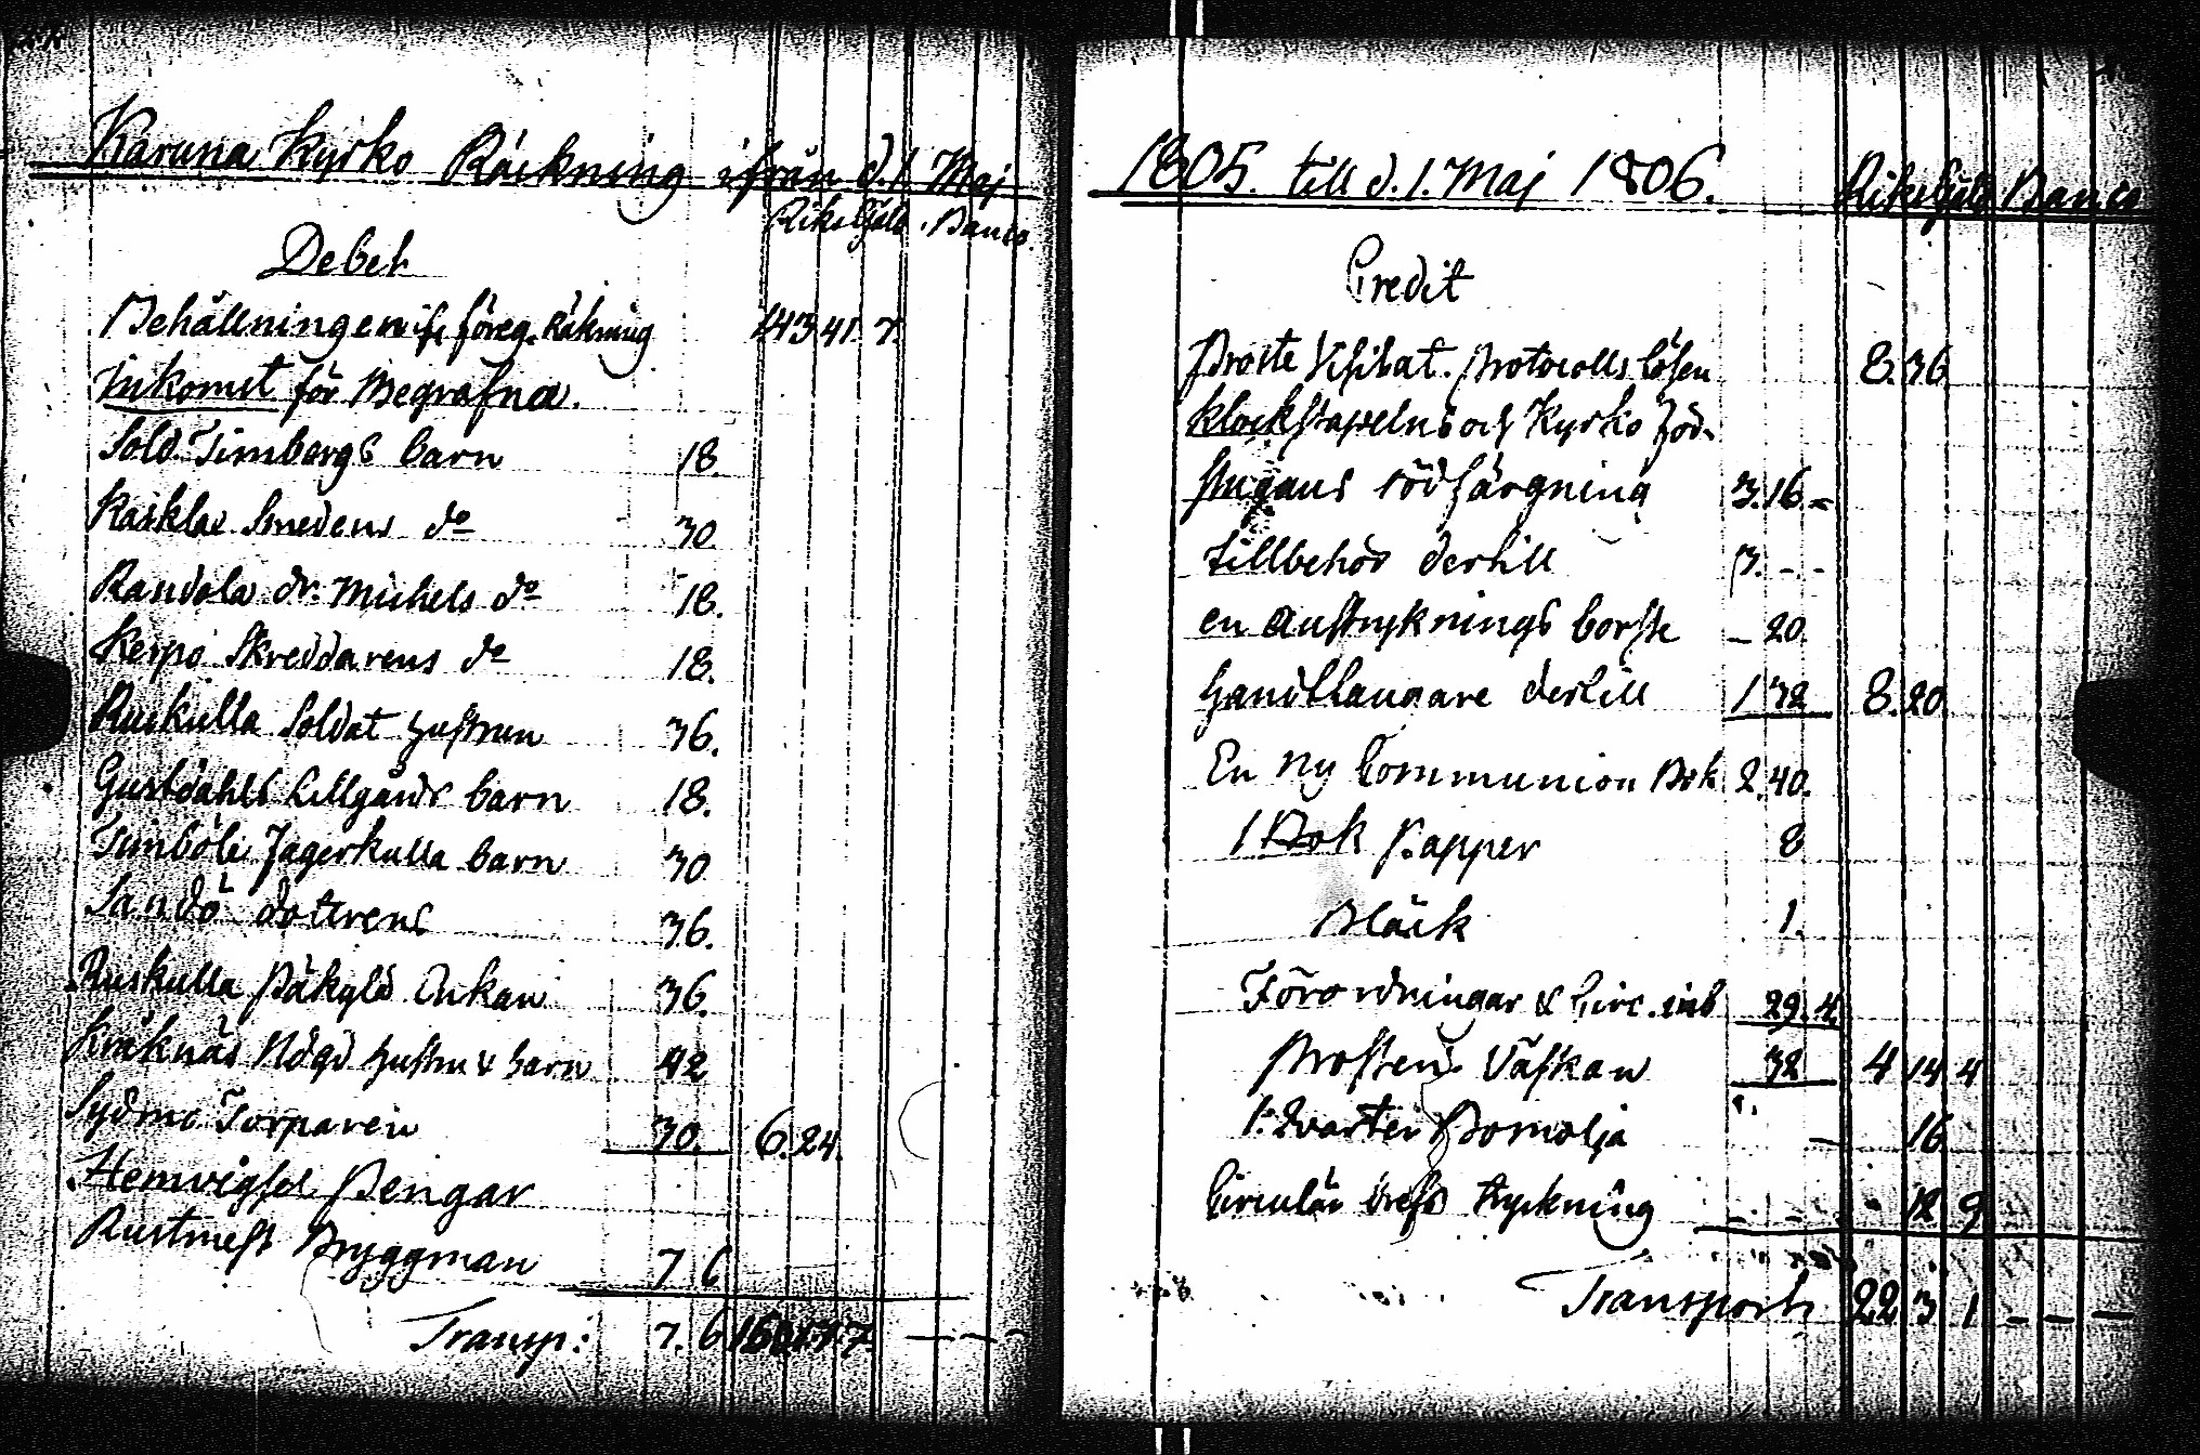 Karuna Kyrko Räckning ifrån d. 1. Maj
Riksgäld. Banco.
Debet
Behållningen ifr. föreg. Räkning 143 41. 7.
Inkomst för Begrafna.
Sold. Timbergs barn 18.
Smedens do 30.
Randola dr. Michels do 18.
Kerpo Skreddarens do 18.
Ruskulla Soldat hustrun 36.
Lillgårds barn 18.
Jägerkulla barn 30
Sandö dottrens 36.
Ruskulla Enkan 36.
Kräknäs hustru & barn 42
Sydmo Torparen 30. 6. 24.
Pengar
Rustmest. Bryggman 7 6
Transp: 7. 6 150 17. 7. — — —
1805. till d. 1. Maj 1806. Riksgäld Banco
Credit
Proste Visitat. Protocolls lösen 8. 36
Klockstapelns och Kyrko
stugans rödfärgning 3. 16. –
tillbehör dertill 3. – –
en anstryknings borste – 20.
handtlangare dertill 1 32 8. 20
En ny Communion Bok 2. 40.
1 Bok Papper 8
Bläck 1.
Förordningar & Circ. inb 29. 4.
Prostens Väskan 32 4 14 4
1. Qvarter Bomolja — 16
Circulär brefs tryckning – – 12 9
Transport 22 3 1 – – —